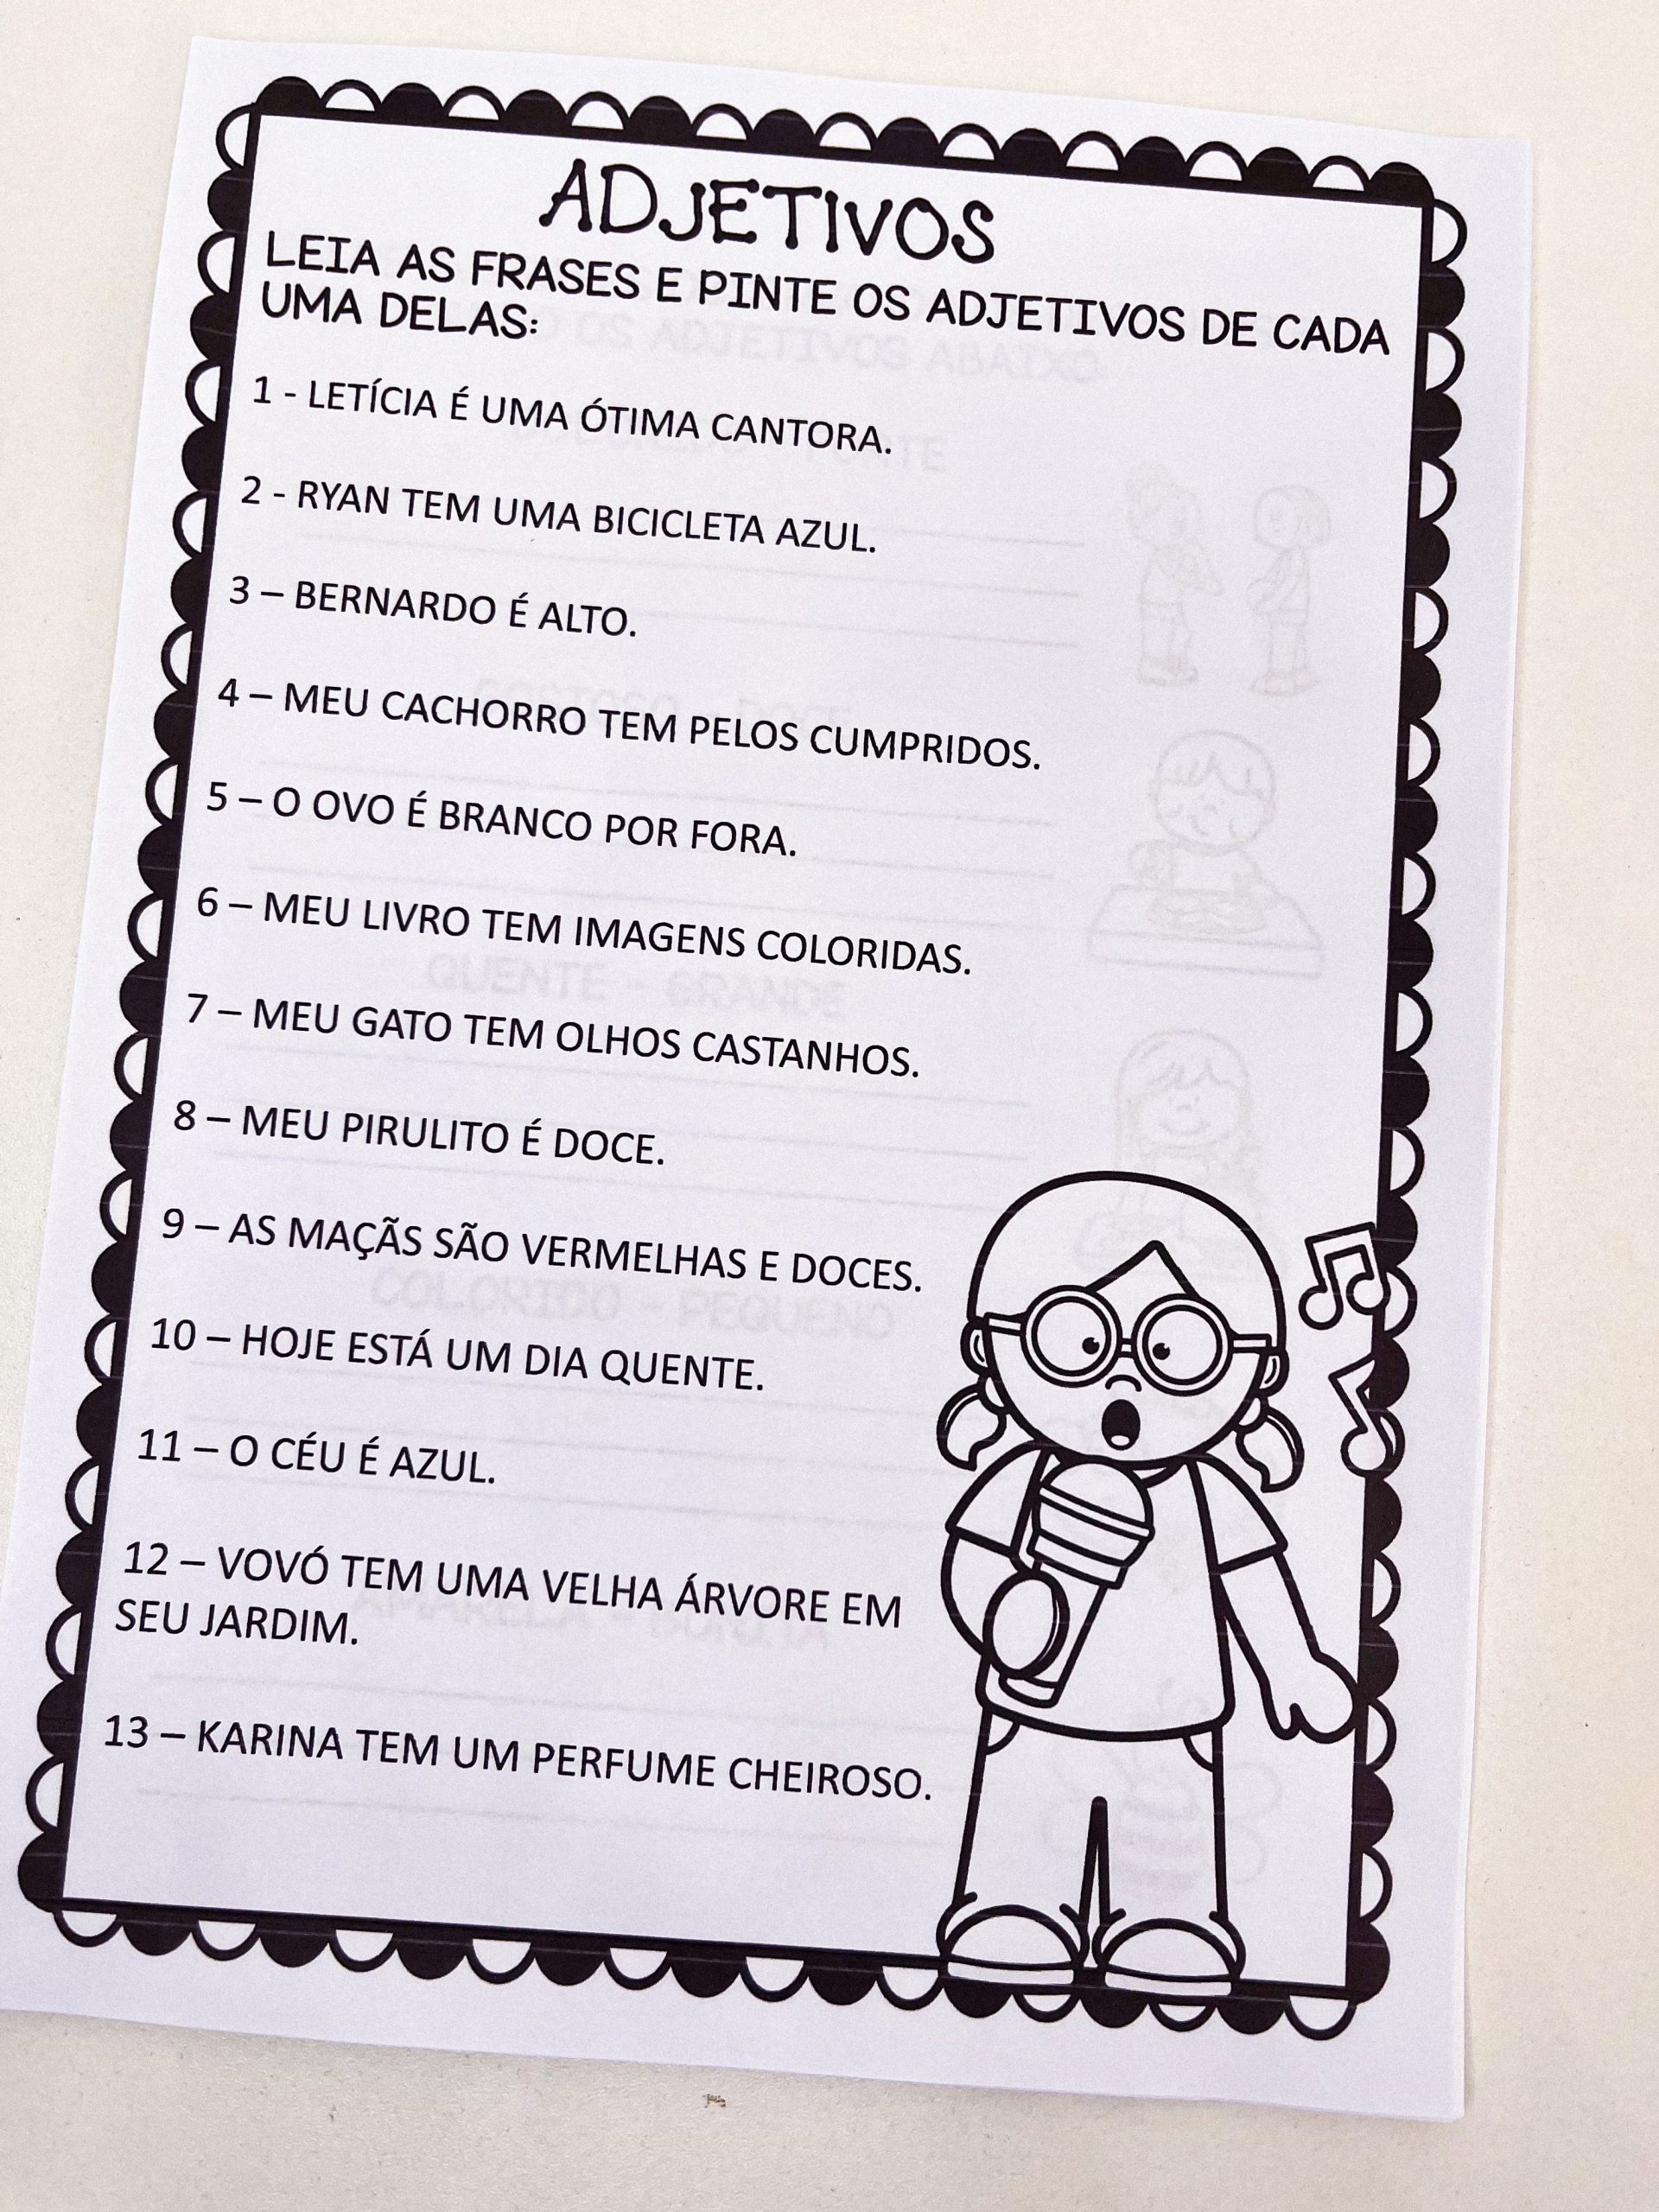 ADJETIVOS
LEIA AS FRASES E PINTE OS ADJETIVOS DE CADA
UMA DELAS:
1 - LETÍCIA É UMA ÓTIMA CANTORA.
2 - RYAN TEM UMA BICICLETA AZUL.
3 – BERNARDO É ALTO.
4 – MEU CACHORRO TEM PELOS CUMPRIDOS.
5 – O OVO É BRANCO POR FORA.
6 – MEU LIVRO TEM IMAGENS COLORIDAS.
7 – MEU GATO TEM OLHOS CASTANHOS.
8 – MEU PIRULITO É DOCE.
9 – AS MAÇÃS SÃO VERMELHAS E DOCES.
10 – HOJE ESTÁ UM DIA QUENTE.
11 – O CÉU É AZUL.
12 – VOVÓ TEM UMA VELHA ÁRVORE EM
SEU JARDIM.
13 – KARINA TEM UM PERFUME CHEIROSO.